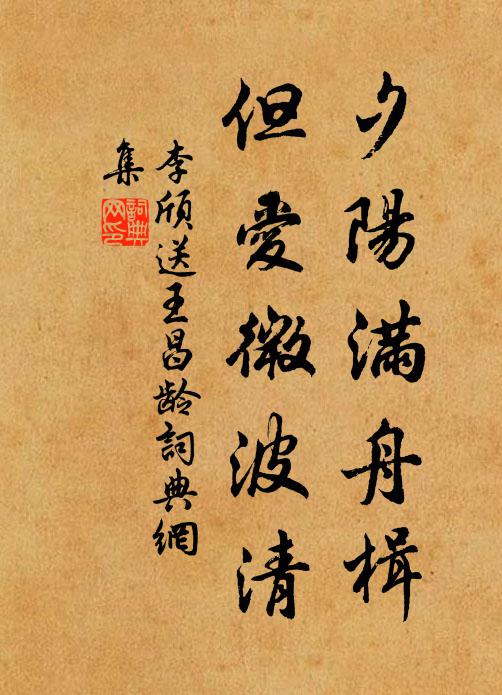 夕陽滿舟楫
但愛微波清
李頎送王昌齡詞典網
集
詞典網印